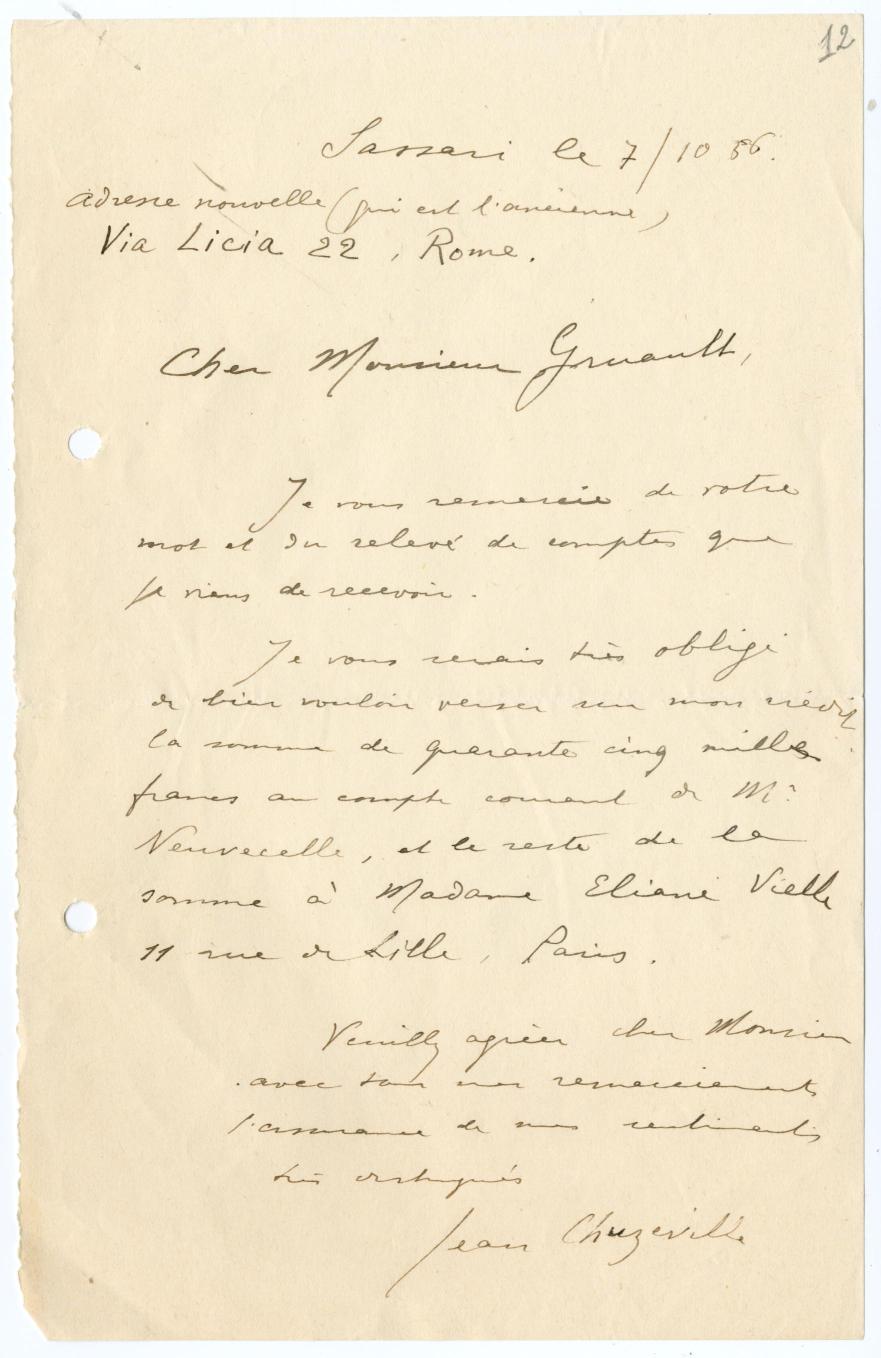 12
Sassari le 7/10 56.
adresse nouvelle (qui est l'ancienne)
Via Licia 22, Rome.
Cher Monsieur Gruault,
Je vous remercie de votre
mot et du relevé de comptes que
je viens de recevoir.
Je vous serais très obligé
de bien vouloir verser sur mon crédit
la somme de quarante cinq mille
francs au compte courant de Mr
Neuvecelle, et le reste de la
somme à Madame Eliane Vielle
11 rue de Lille, Paris.
Veuillez agréer cher Monsieur
avec tous mes remerciements
l'assurance de mes sentiments
très distingués
Jean Chuzeville